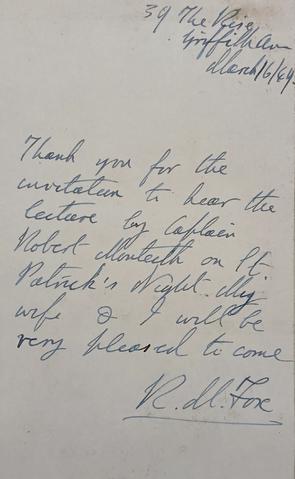 39 The Rise
Griffith Av.
March/6/49.
Thank you for the
invitation to hear the
lecture by Captain
Robert Monteith on St.
Patrick's Night. My
wife & I will be
very pleased to come
R. M. Fox